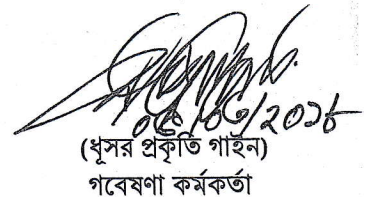 ০৫/০৩/২০১৮
(ধূসর প্রকৃতি গাইন)
গবেষণা কর্মকর্তা